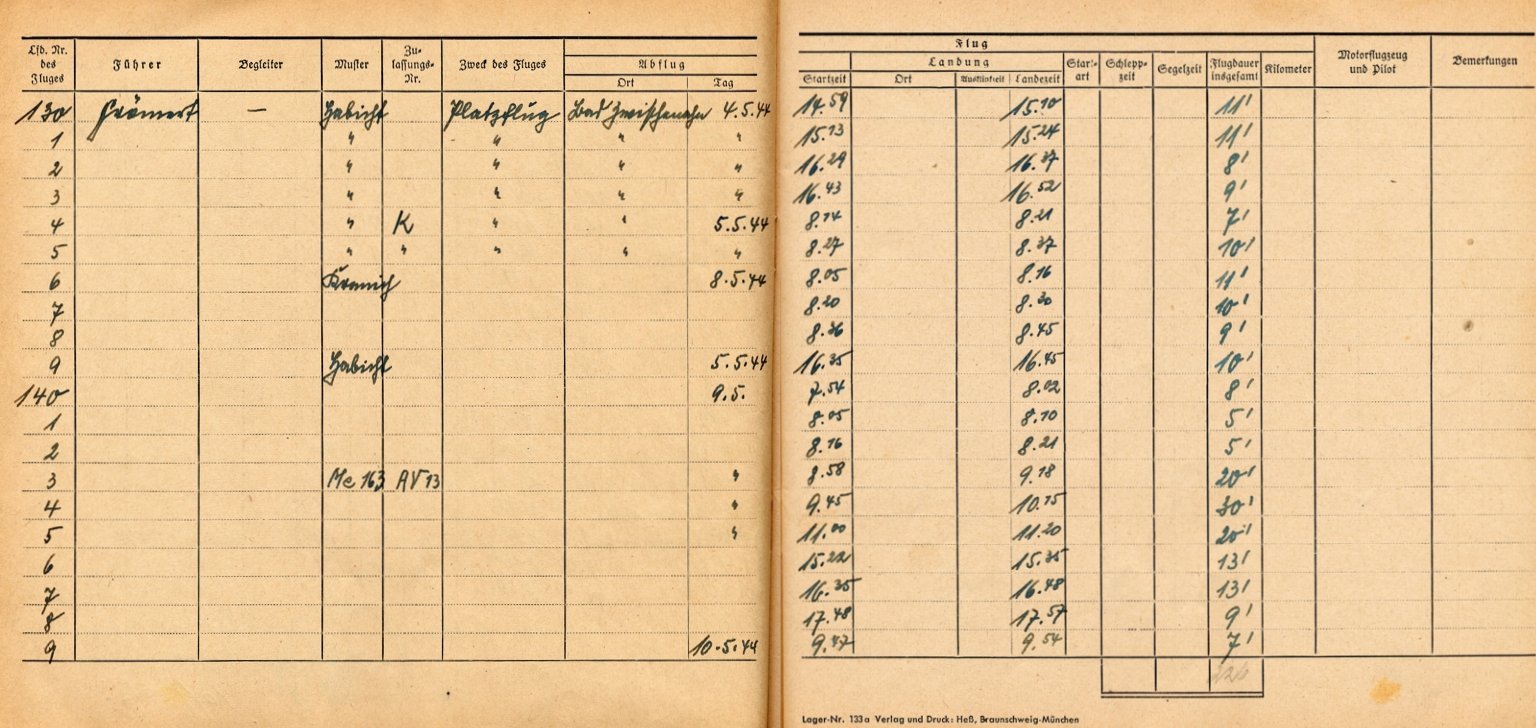 Lfd. Nr. des Fluges Führer Begleiter Muster Zulassungs-Nr. Zweck des Fluges Abflug Ort Tag
Flug Landung Startzeit Ort Landezeit Startart Schleppzeit Segelzeit Flugdauer insgesamt Kilometer Motorflugzeug und Pilot Bemerkungen
130 Frömert — Habicht Platzflug Bad Zwischenahn 4.5.44 14.59 15.10 11'
1 " " " " 15.13 15.24 11'
2 " " " " 16.29 16.37 8'
3 " " " " 16.43 16.52 9'
4 " K " " 5.5.44 8.14 8.21 7'
5 " " " " " 8.27 8.37 10'
6 Kranich 8.5.44 8.05 8.16 11'
7 8.20 8.30 10'
8 8.36 8.45 9'
9 Habicht 5.5.44 16.35 16.45 10'
140 9.5. 7.54 8.02 8'
1 8.05 8.10 5'
2 8.16 8.21 5'
3 Me 163 AV 13 " 8.58 9.18 20'
4 " 9.45 10.15 30'
5 " 11.00 11.20 20'
6 15.22 15.35 13'
7 16.35 16.48 13'
8 17.48 17.57 9'
9 10.5.44 9.47 9.54 7'
Lager-Nr. 133a Verlag und Druck: Heß, Braunschweig-München